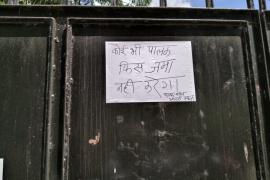 कोई भी पालक
फिस जमा
नही करेगा